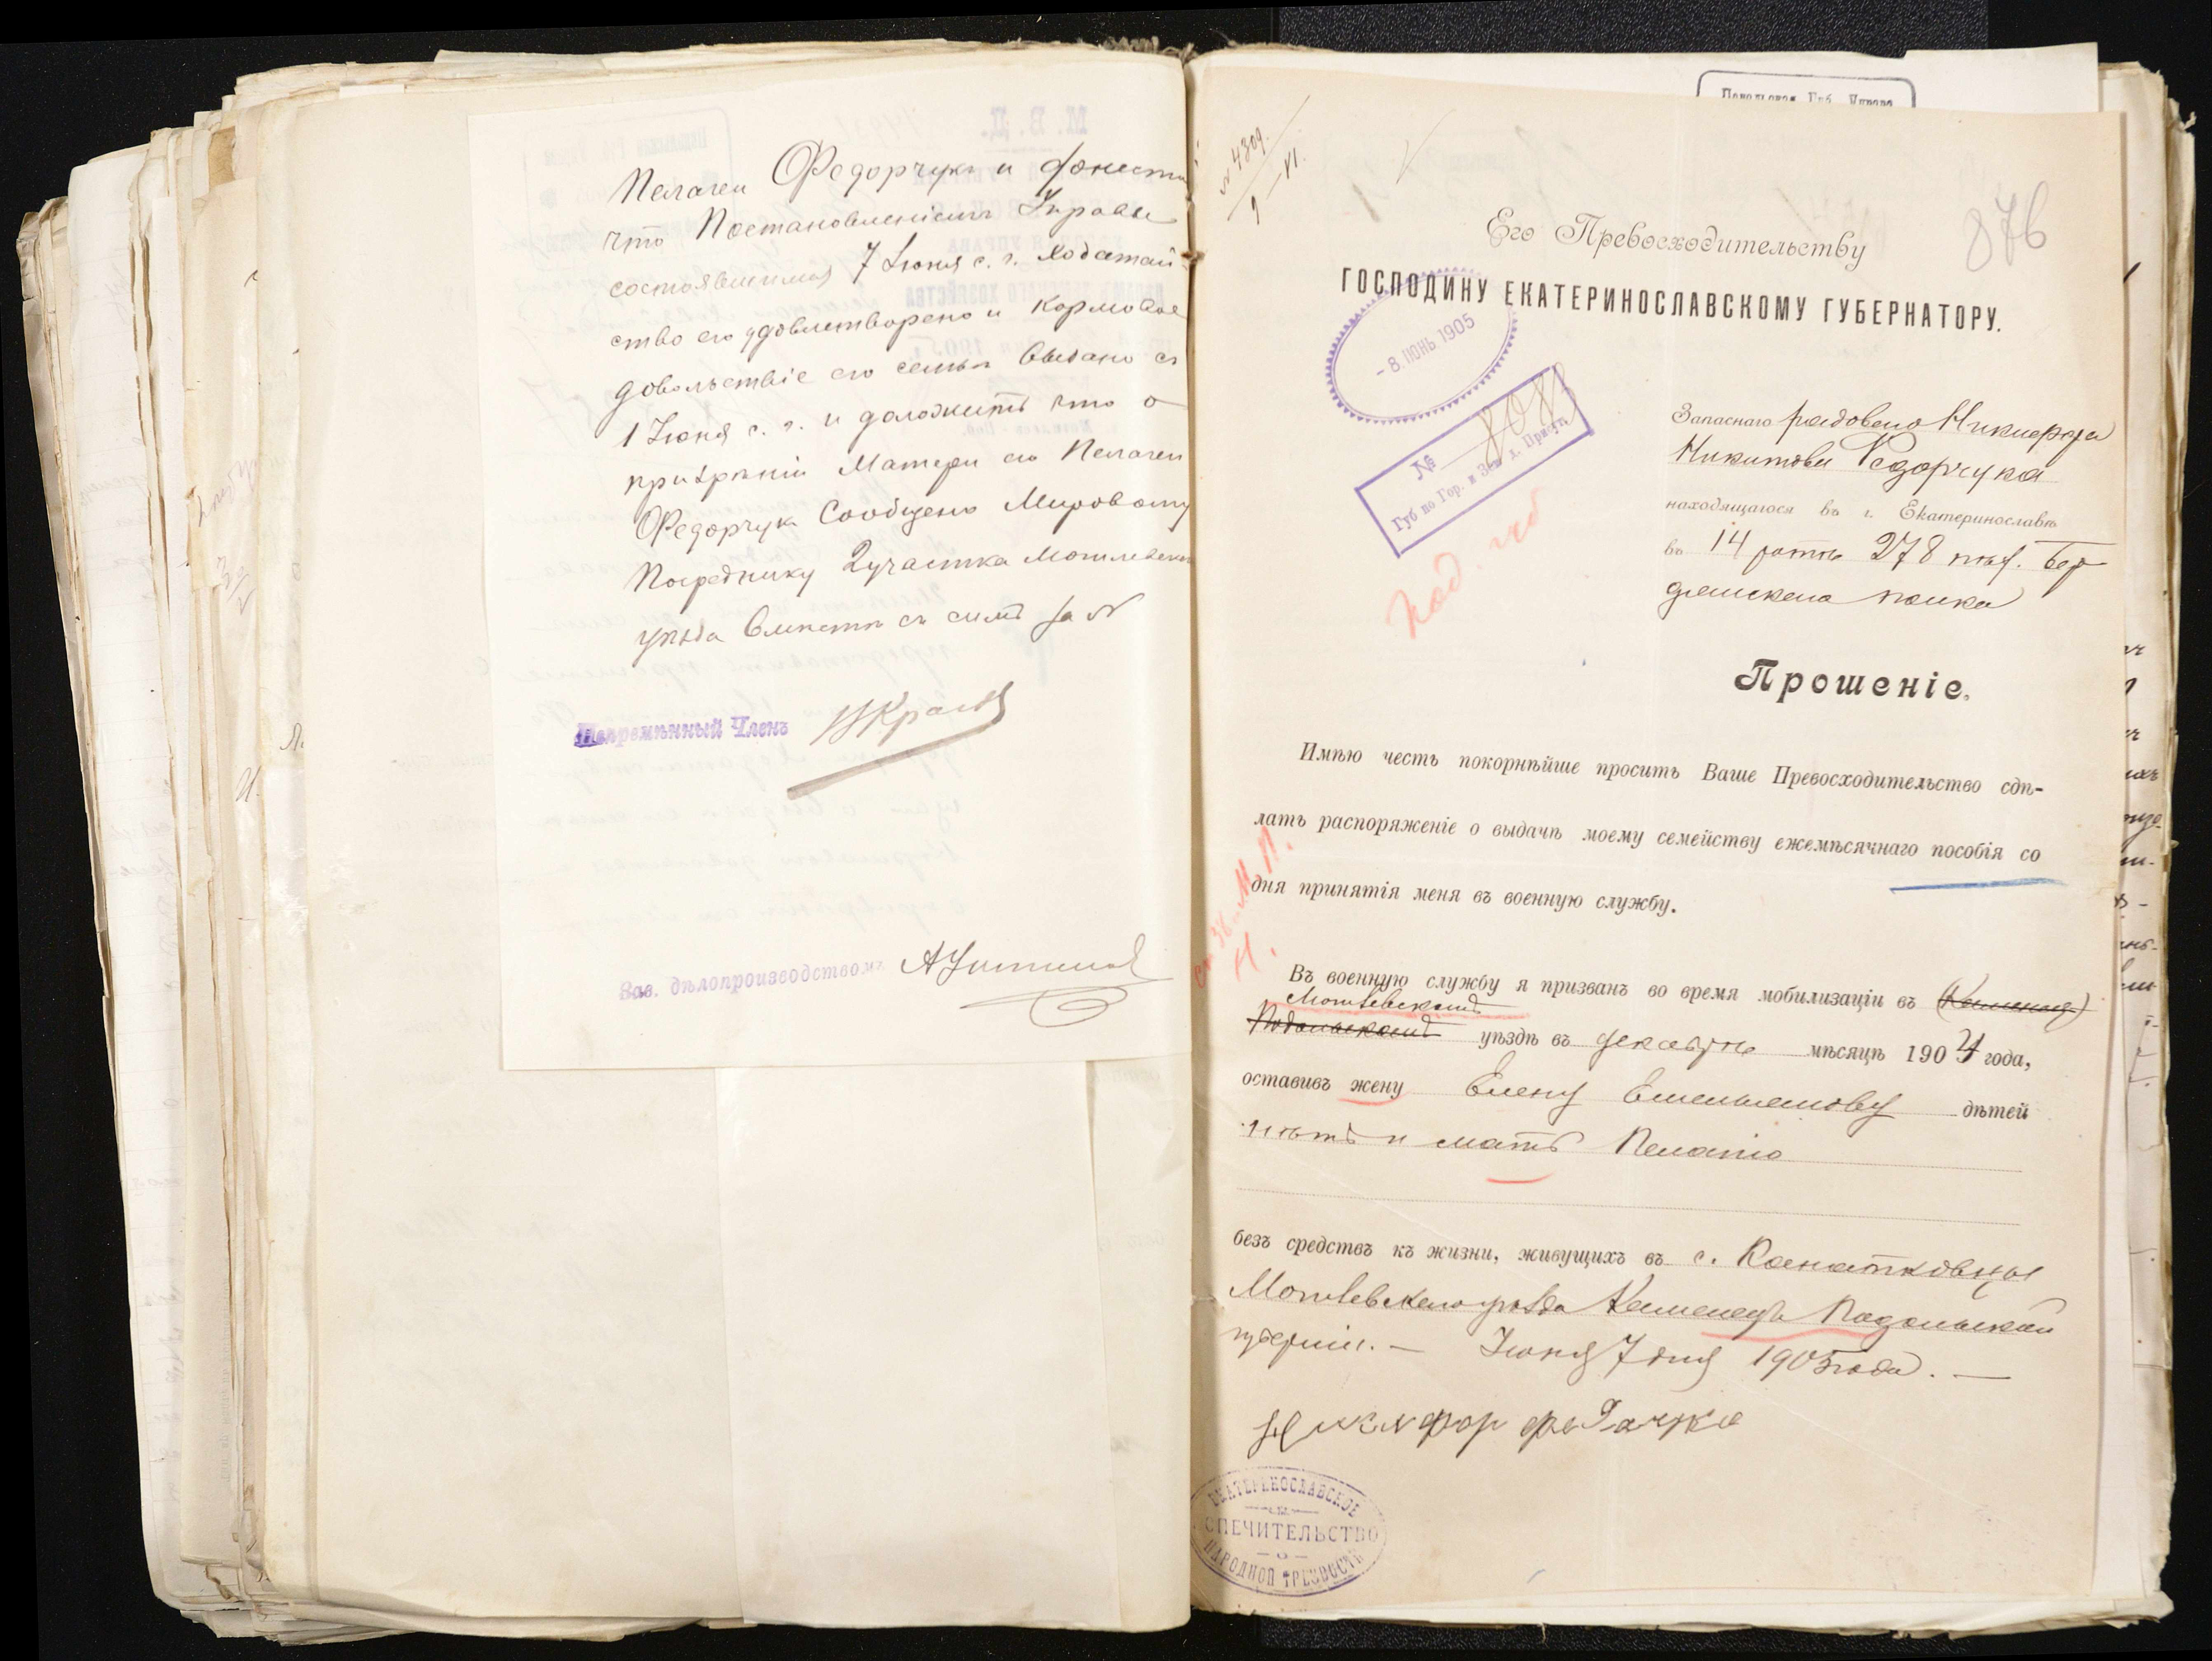 Пелагеи Федорчукъ и донести
что Постановленіемъ Управы
состоявшимся 7 Іюня с. г. ходатай-
ство его удовлетворено и кормовое
довольствіе его семьѣ выдано съ
1 Іюня с. г. и доложить что о
призрѣніи Матери его Пелагеи
Федорчукъ сообщено Мировому
Посреднику 2 участка Могилевск
уѣзда вмѣстѣ съ симъ за №
Непремѣнный Членъ
Зав. дѣлопроизводствомъ
Подольская Губ. Управа
№ 4309.
9-VI.
876
Его Превосходительству
ГОСПОДИНУ ЕКАТЕРИНОСЛАВСКОМУ ГУБЕРНАТОРУ.
- 8. ІЮНЬ 1905
№ 808
Губ по Гор. и Зем. д. Присут.
Запаснаго рядового Никифора
Никитова Федорчука
находящагося въ г. Екатеринославѣ
въ 14 ротѣ 278 пѣх. Бер
дянскаго полка
Под. губ
Прошеніе.
Имѣю честь покорнѣйше просить Ваше Превосходительство сдѣ-
лать распоряженіе о выдачѣ моему семейству ежемѣсячнаго пособія со
дня принятія меня въ военную службу.
Въ военную службу я призванъ во время мобилизаціи въ (Каменец)
Могилевскомъ
Подольскомъ уѣздѣ въ декабрѣ мѣсяцѣ 1904 года,
оставивъ жену Елену Емельянову дѣтей
нѣтъ и мать Пелагію
безъ средствъ къ жизни, живущихъ въ с. Конатковцы
Могилевскаго уѣзда Каменецъ Подольской
губерніи. — Іюня 7 дня 1905 года. —
Никифор Федачука
ЕКАТЕРИНОСЛАВСКОЕ
ПОПЕЧИТЕЛЬСТВО
О
НАРОДНОЙ ТРЕЗВОСТИ